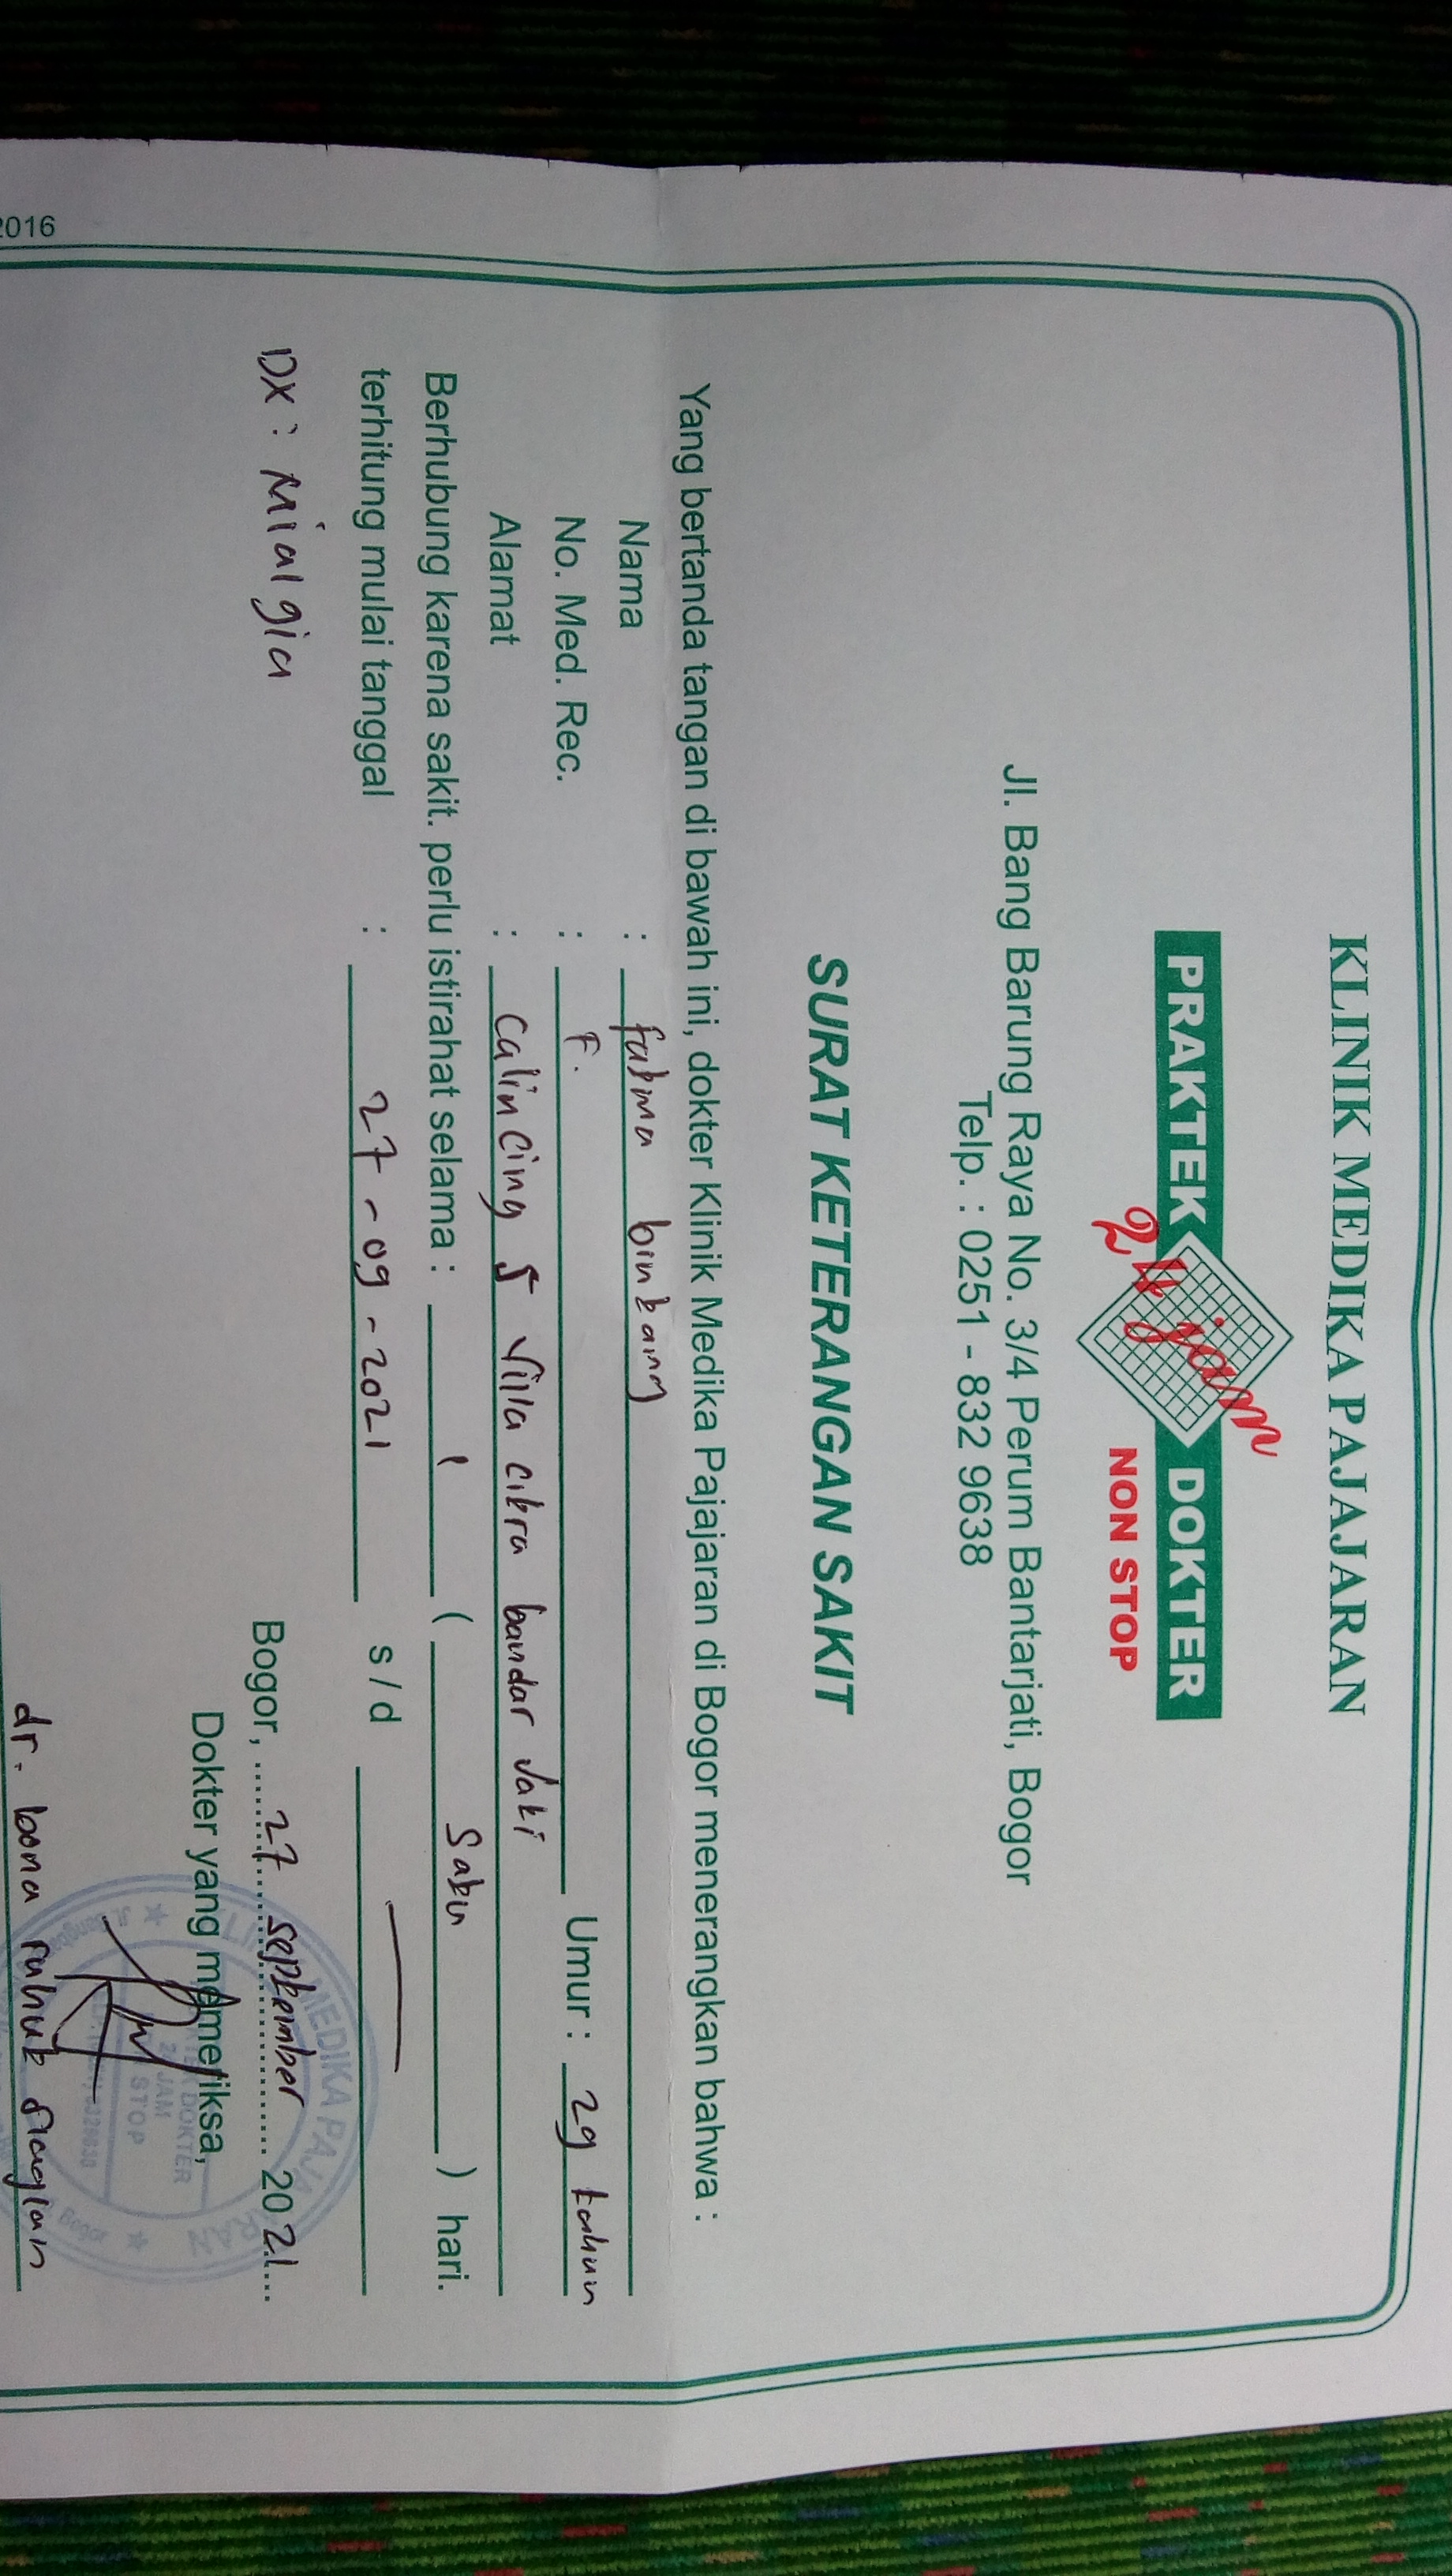 KLINIK MEDIKA PAJAJARAN
PRAKTEK 24 jam DOKTER
NON STOP
Jl. Bang Barung Raya No. 3/4 Perum Bantarjati, Bogor
Telp. : 0251 - 832 9638
SURAT KETERANGAN SAKIT
Yang bertanda tangan di bawah ini, dokter Klinik Medika Pajajaran di Bogor menerangkan bahwa :
Nama : fatma bintang
No. Med. Rec. : F. Umur : 29 tahun
Alamat : Calincing 5 villa citra bandar Jati
Berhubung karena sakit. perlu istirahat selama : 1 ( Satu ) hari.
terhitung mulai tanggal : 27-09-2021 s/d —
DX : Mialgia
Bogor, 27 September 2021
Dokter yang memeriksa,
MEDIKA PAJAJARAN
DOKTER
JAM
STOP
Bogor
dr. bona
2016